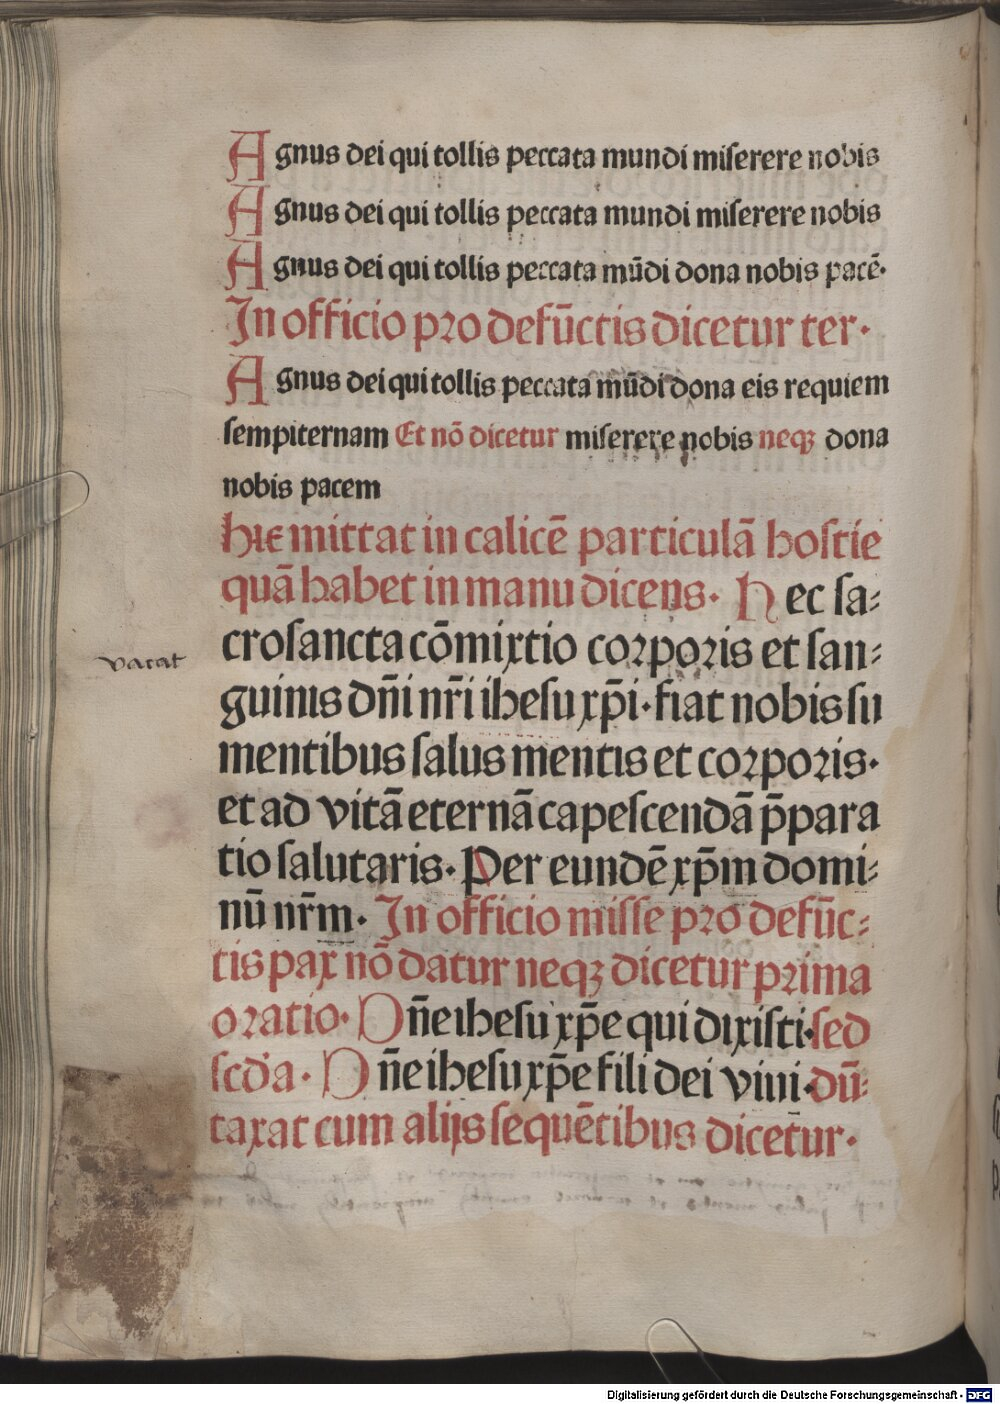 Agnus dei qui tollis peccata mundi miserere nobis
Agnus dei qui tollis peccata mundi miserere nobis
Agnus dei qui tollis peccata mūdi dona nobis pacē·
In officio pro defūctis dicetur ter·
Agnus dei qui tollis peccata mūdi dona eis requiem
sempiternam Et nō dicetur miserere nobis neqꝫ dona
nobis pacem
hic mittat in calicē particulā hostie
quā habet in manu dicens· Hec sa-
crosancta cōmixtio corporis et san-
vacat
guinis dn̄i nr̄i ihesu xp̄i· fiat nobis su
mentibus salus mentis et corporis·
et ad vitā eternā capescendā p̄para
tio salutaris· Per eundē xp̄m domi-
nū nr̄m· In officio misse pro defūc-
tis pax nō datur neqꝫ dicetur prima
oratio· Dn̄e ihesu xp̄e qui dixisti· sed
scd̄a· Dn̄e ihesu xp̄e fili dei viui· dū-
taxat cum alijs sequētibus dicetur·
Digitalisierung gefördert durch die Deutsche Forschungsgemeinschaft - DFG